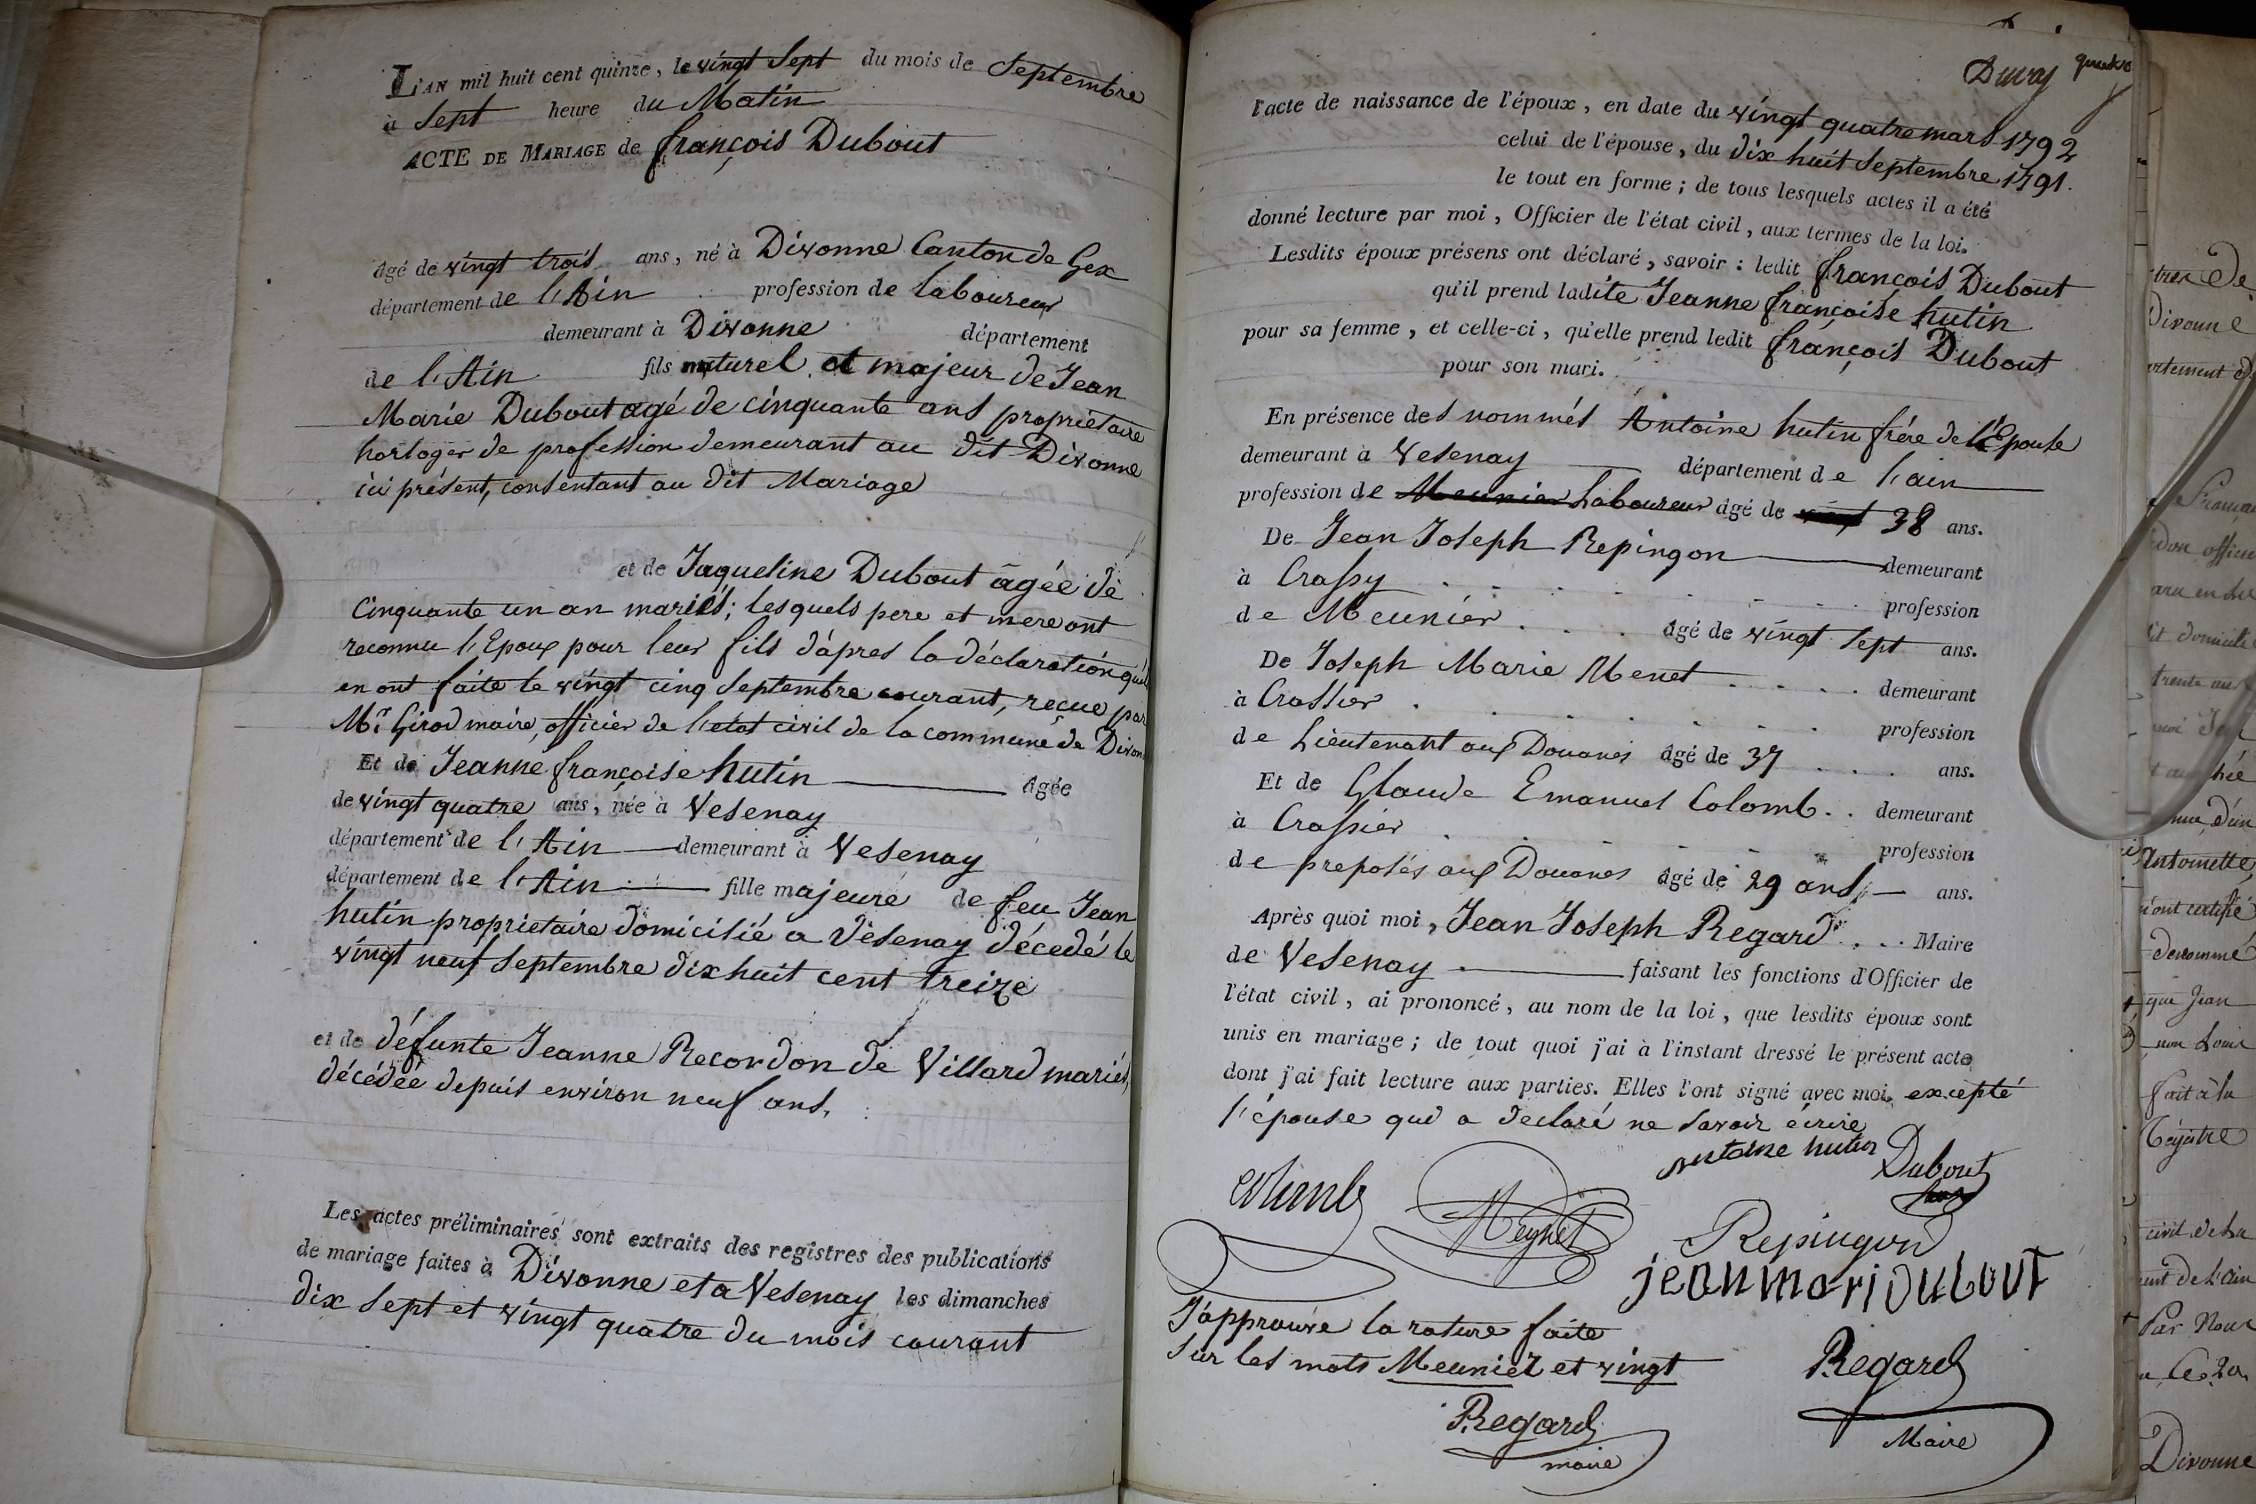 L'AN mil huit cent quinze, le vingt sept du mois de Septembre
à Sept heure du Matin
ACTE DE MARIAGE de françois Dubout
âgé de vingt trois ans, né à Divonne Canton de Gex
département de l'Ain profession de laboureur
demeurant à Divonne département
de l'Ain fils naturel et majeur de Jean
Marie Dubout agé de cinquante ans propriétaire
horloger de profession demeurant au dit Divonne
ici présent, consentant au dit Mariage
et de Jaqueline Dubout âgée de
Cinquante un an mariés; lesquels pere et mere ont
reconnu l'Epoux pour leur fils d'àpres la déclaration qu'ils
en ont faite le vingt cinq Septembre courant, reçue par
Mr Girod maire, officier de l'etat civil de la commune de Divonne
Et de Jeanne françoise hutin âgée
de vingt quatre ans, née à Vesenay
département de l'Ain demeurant à Vesenay
département de l'Ain fille majeure de feu Jean
hutin proprietaire domicilié a Vesenay décedé le
vingt neuf Septembre dix huit cent treize
et de défunte Jeanne Recordon de Villard mariés,
décédée depuis environ neuf ans.
Les actes préliminaires sont extraits des registres des publications
de mariage faites à Divonne et a Vesenay les dimanches
dix Sept et vingt quatre du mois courant
quatre
l'acte de naissance de l'époux, en date du vingt quatre mars 1792
celui de l'épouse, du dix huit Septembre 1791.
le tout en forme; de tous lesquels actes il a été
donné lecture par moi, Officier de l'état civil, aux termes de la loi.
Lesdits époux présens ont déclaré, savoir: ledit françois Dubout
qu'il prend ladite Jeanne françoise hutin
pour sa femme, et celle-ci, qu'elle prend ledit françois Dubout
pour son mari.
En présence des nommés Antoine hutin frére de l'Epouse
demeurant à Vesenay département de l'ain
profession de Meunier Laboureur âgé de vingt 38 ans.
De Jean Joseph Repingon demeurant
à Crassy profession
de Meunier âgé de vingt Sept ans.
De Joseph Marie Menet demeurant
à Crassier profession
de Lieutenant aux Douanes âgé de 37 ans.
Et de Glaude Emanuel Colomb demeurant
à Crassier profession
de preposés aux Douanes âgé de 29 ans ans.
Après quoi moi, Jean Joseph Regard Maire
de Vesenay faisant les fonctions d'Officier de
l'état civil, ai prononcé, au nom de la loi, que lesdits époux sont
unis en mariage; de tout quoi j'ai à l'instant dressé le présent acte
dont j'ai fait lecture aux parties. Elles l'ont signé avec moi excepté
l'épouse qui a declaré ne Savoir écrire
antoine hutin Dubout
Colomb Meynet Repingon
jean mari Dubout
J'approuve la rature faite
Sur les mots Meunier et vingt
Regard Regard
maire Maire
Divonne
Antoinette
denommé
que Jean
fait à la
Régistre
civil de la
Par Nous
Divonne